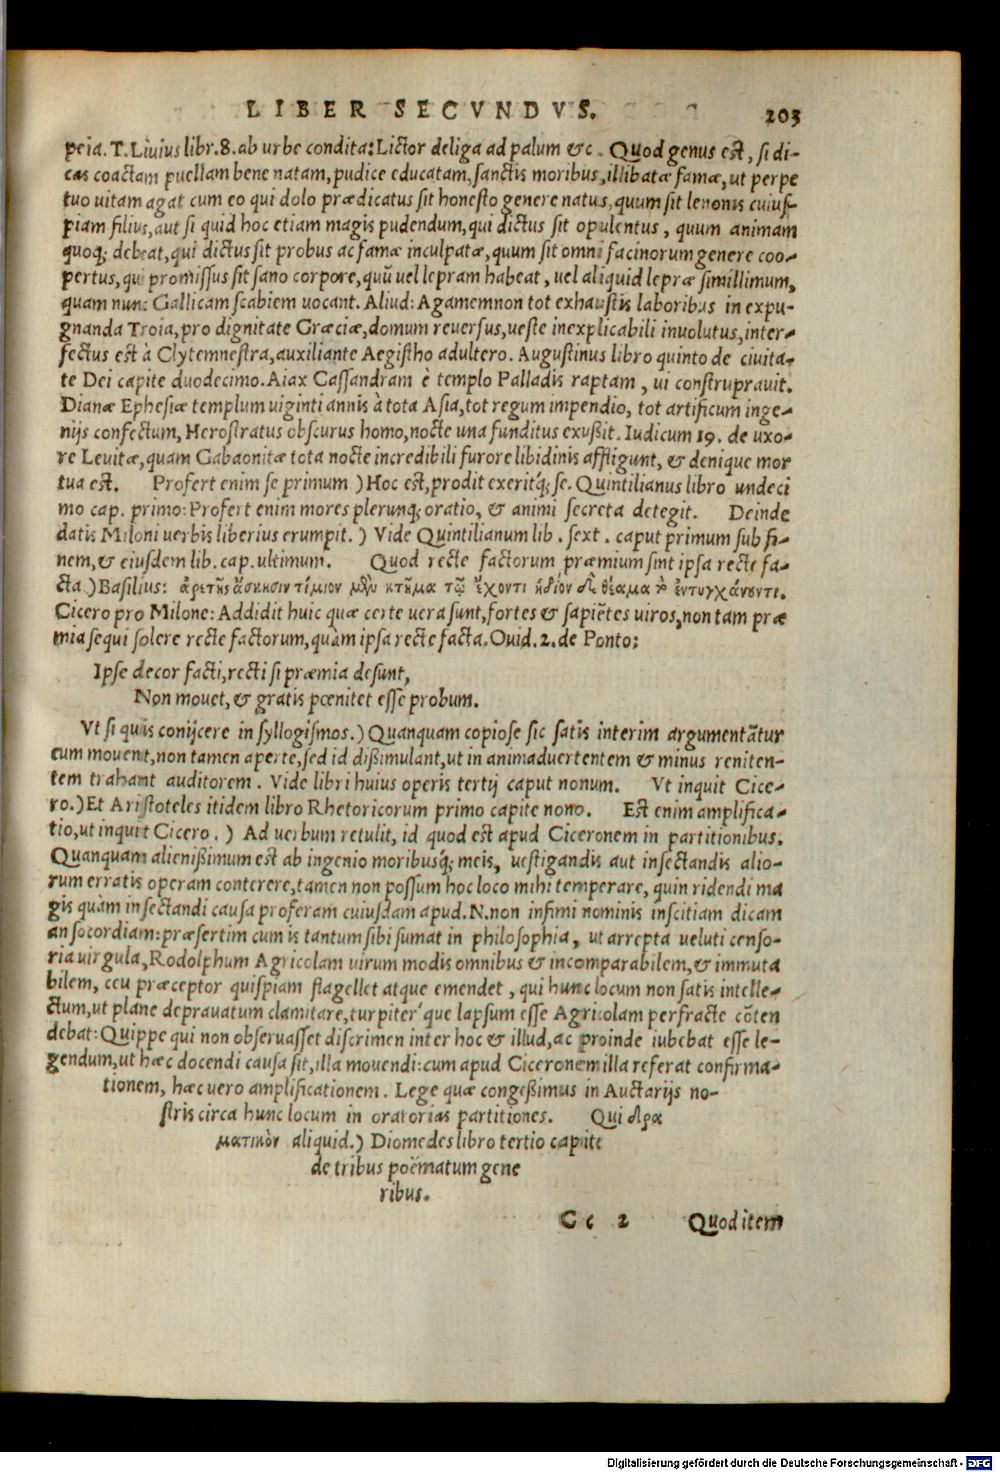 LIBER SECVNDVS. 203
peia. T. Liuius libr. 8. ab urbe condita: Lictor deliga ad palum &c. Quod genus est, si di-
cas coactam puellam bene natam, pudice educatam, sanctis moribus, illibatæ famæ, ut perpe
tuo uitam agat cum eo qui dolo prædicatus sit honesto genere natus, quum sit lenonis cuius-
piam filius, aut si quid hoc etiam magis pudendum, qui dictus sit opulentus, quum animam
quoq; debeat, qui dictus sit probus ac famæ inculpatæ, quum sit omni facinorum genere coo-
pertus, qui promissus sit sano corpore, quũ uel lepram habeat, uel aliquid lepræ simillimum,
quam nunc Gallicam scabiem uocant. Aliud: Agamemnon tot exhaustis laboribus in expu-
gnanda Troia, pro dignitate Græciæ, domum reuersus, ueste inexplicabili inuolutus, inter-
fectus est à Clytemnestra, auxiliante Aegistho adultero. Augustinus libro quinto de ciuita-
te Dei capite duodecimo. Aiax Cassandram è templo Palladis raptam, ui construprauit.
Dianæ Ephesiæ templum uiginti annis à tota Asia, tot regum impendio, tot artificum inge-
nijs confectum, Herostratus obscurus homo, nocte una funditus exußit. Iudicum 19. de uxo-
re Leuitæ, quam Gabaonitæ tota nocte incredibili furore libidinis affligunt, & denique mor
tua est. Profert enim se primum ) Hoc est, prodit exeritq́; se. Quintilianus libro undeci
mo cap. primo: Profert enim mores plerunq; oratio, & animi secreta detegit. Deinde
datis Miloni uerbis liberius erumpit. ) Vide Quintilianum lib. sext. caput primum sub fi-
nem, & eiusdem lib. cap. ultimum. Quod recte factorum præmium sint ipsa recte fa-
cta. ) Basilius: ἀρετῆς ἄσκησιν τίμιον μὲν κτῆμα τῷ ἔχοντι ἥδιον δὲ θέαμα τοῖς ἐντυγχάνουσι.
Cicero pro Milone: Addidit huic quæ certe uera sunt, fortes & sapiẽtes uiros, non tam præ
mia sequi solere recte factorum, quàm ipsa recte facta. Ouid. 2. de Ponto:
Ipse decor facti, recti si præmia desunt,
Non mouet, & gratis pœnitet esse probum.
Vt si quis conijcere in syllogismos. ) Quanquam copiose sic satis interim argumentãtur
cum mouent, non tamen aperte, sed id dißimulant, ut in animaduertentem & minus reniten-
tem trahant auditorem. Vide libri huius operis tertij caput nonum. Vt inquit Cice-
ro. ) Et Aristoteles itidem libro Rhetoricorum primo capite nono. Est enim amplifica-
tio, ut inquit Cicero. ) Ad uerbum retulit, id quod est apud Ciceronem in partitionibus.
Quanquam alienißimum est ab ingenio moribusq́; meis, uestigandis aut insectandis alio-
rum erratis operam conterere, tamen non possum hoc loco mihi temperare, quin ridendi ma
gis quàm insectandi causa proferam cuiusdam apud. N. non infimi nominis inscitiam dicam
an socordiam: præsertim cum is tantum sibi sumat in philosophia, ut arrepta ueluti censo-
ria uirgula, Rodolphum Agricolam uirum modis omnibus & incomparabilem, & immuta
bilem, ceu præceptor quispiam flagellet atque emendet, qui hunc locum non satis intelle-
ctum, ut plane deprauatum clamitare, turpiter'que lapsum esse Agricolam perfracte cõten
debat: Quippe qui non obseruasset discrimen inter hoc & illud, ac proinde iubebat esse le-
gendum, ut hæc docendi causa sit, illa mouendi: cum apud Ciceronem illa referat confirma-
tionem, hæc uero amplificationem. Lege quæ congeßimus in Auctarijs no-
stris circa hunc locum in oratorias partitiones. Qui δρα
ματικὸν aliquid. ) Diomedes libro tertio capite
de tribus poëmatum gene
ribus.
Cc 2 Quod item
Digitalisierung gefördert durch die Deutsche Forschungsgemeinschaft - DFG